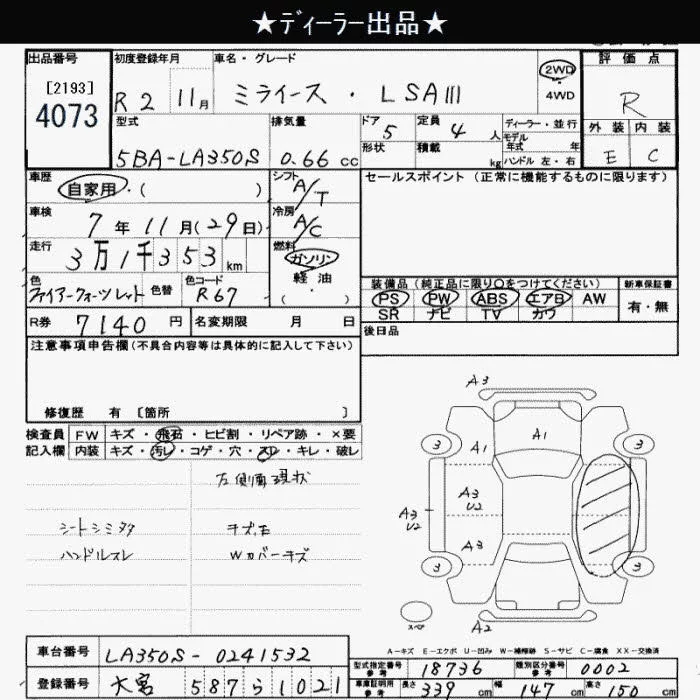 ★ディーラー出品★
出品番号 初度登録年月 車名・グレード 評価点
[2193] 4073
R2 11月 ミライース・LSAⅢ 2WD 4WD R
型式 排気量 ドア 5 定員 4人 ディーラー・並行 外装 内装
5BA-LA350S 0.66 cc 形状 積載 kg モデル年式 年 ハンドル 左・右 E C
車歴 自家用・( ) シフト A/T セールスポイント (正常に機能するものに限ります)
車検 7年11月(29日) 冷房 A/C
走行 3万1千353km 燃料 ガソリン 軽油 (・)
色 ファイアークォーツレット 色替 色コード R67
装備品 (純正品に限り○をつけてください) 新車保証書
PS PW ABS エアB AW 有・無
SR ナビ TV カワ
R券 7140円 名変期限 月 日 後日品
注意事項申告欄 (不具合内容等は具体的に記入して下さい)
修復歴 有 [箇所 ]
検査員 FW キズ・飛石・ヒビ割・リペア跡・×要
記入欄 内装 キズ・汚レ・コゲ・穴・スレ・キレ・破レ
左側面現状
シートシミタタ キズ毛
ハンドルスレ Wカバーキズ
A3
A1
3 A1 3
A3 U2 A3 U2
A3
3 3
スペア A2
A-キズ E-エクボ U-凹み W-補修跡 S-サビ C-腐食 XX-交換済
車台番号 LA350S-0241532
型式指定番号 参考 18736 類別区分番号 参考 0002
登録番号 大宮 587 ら 1021
車庫証明用 参考 長さ 339 cm 幅 147 cm 高さ 150 cm